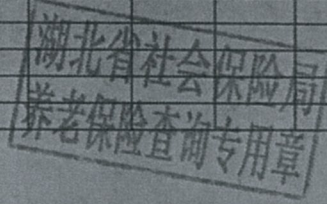 湖北省社会保险局
养老保险查询专用章